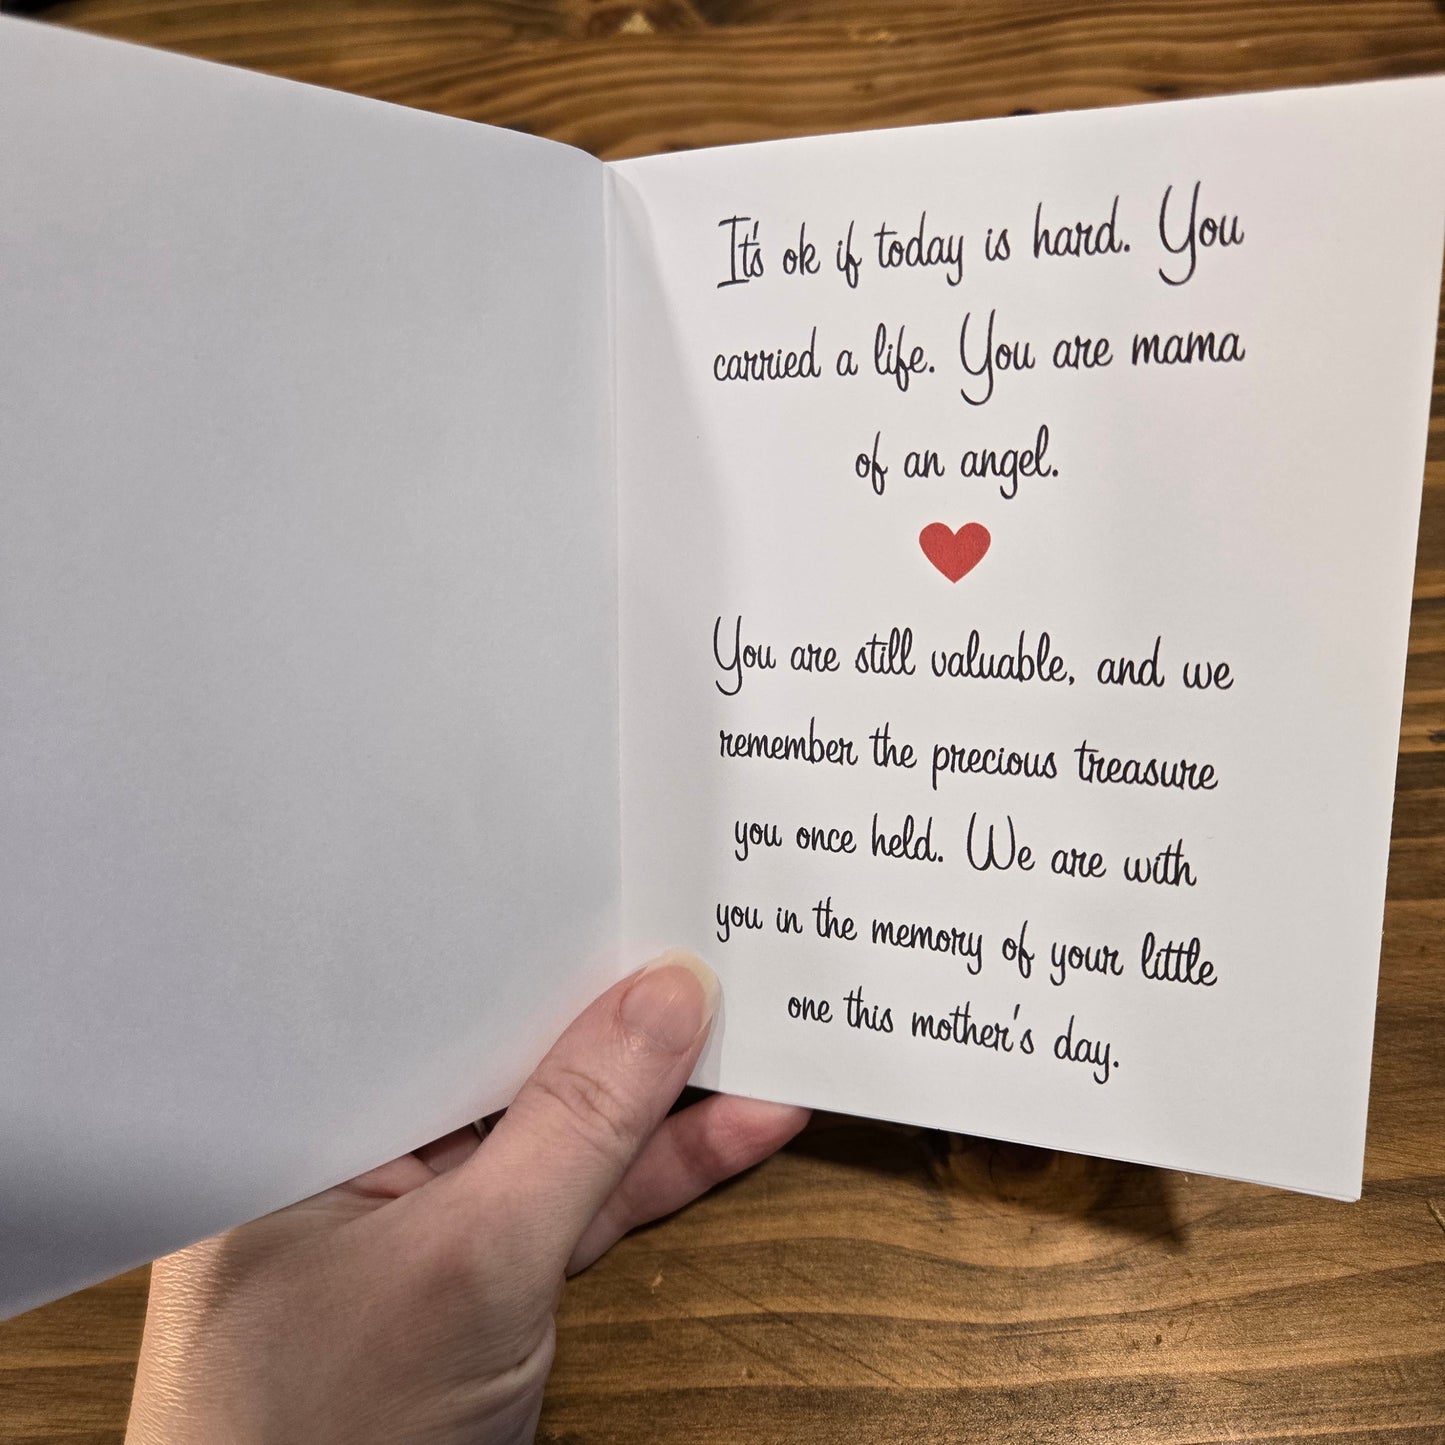 It's ok if today is hard. You
carried a life. You are mama
of an angel.
You are still valuable, and we
remember the precious treasure
you once held. We are with
you in the memory of your little
one this mother's day.